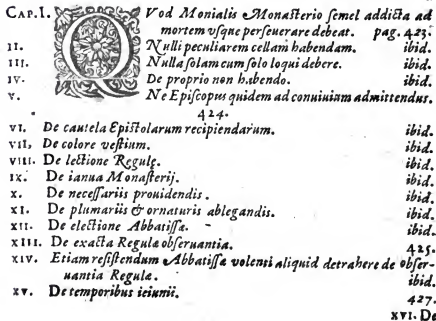 CAP. I. QVod Monialis Monasterio semel addicta ad
mortem vsque perseuerare debeat. pag. 423.
II. Nulli peculiarem cellam habendam. ibid.
III. Nulla solam cum solo loqui debere. ibid.
IV. De proprio non habendo. ibid.
V. Ne Episcopus quidem ad conuiuium admittendus.
424.
VI. De cautela Epistolarum recipiendarum. ibid.
VII. De colore vestium. ibid.
VIII. De lectione Regulę. ibid.
IX. De ianua Monasterij. ibid.
X. De necessariis prouidendis. ibid.
XI. De plumariis & ornaturis ablegandis. ibid.
XII. De electione Abbatissæ. ibid.
XIII. De exacta Regulæ obseruantia. 425.
XIV. Etiam resistendum Abbatissæ volenti aliquid detrahere de obser-
uantia Regulæ. ibid.
XV. De temporibus ieiunii. 427.
XVI. De